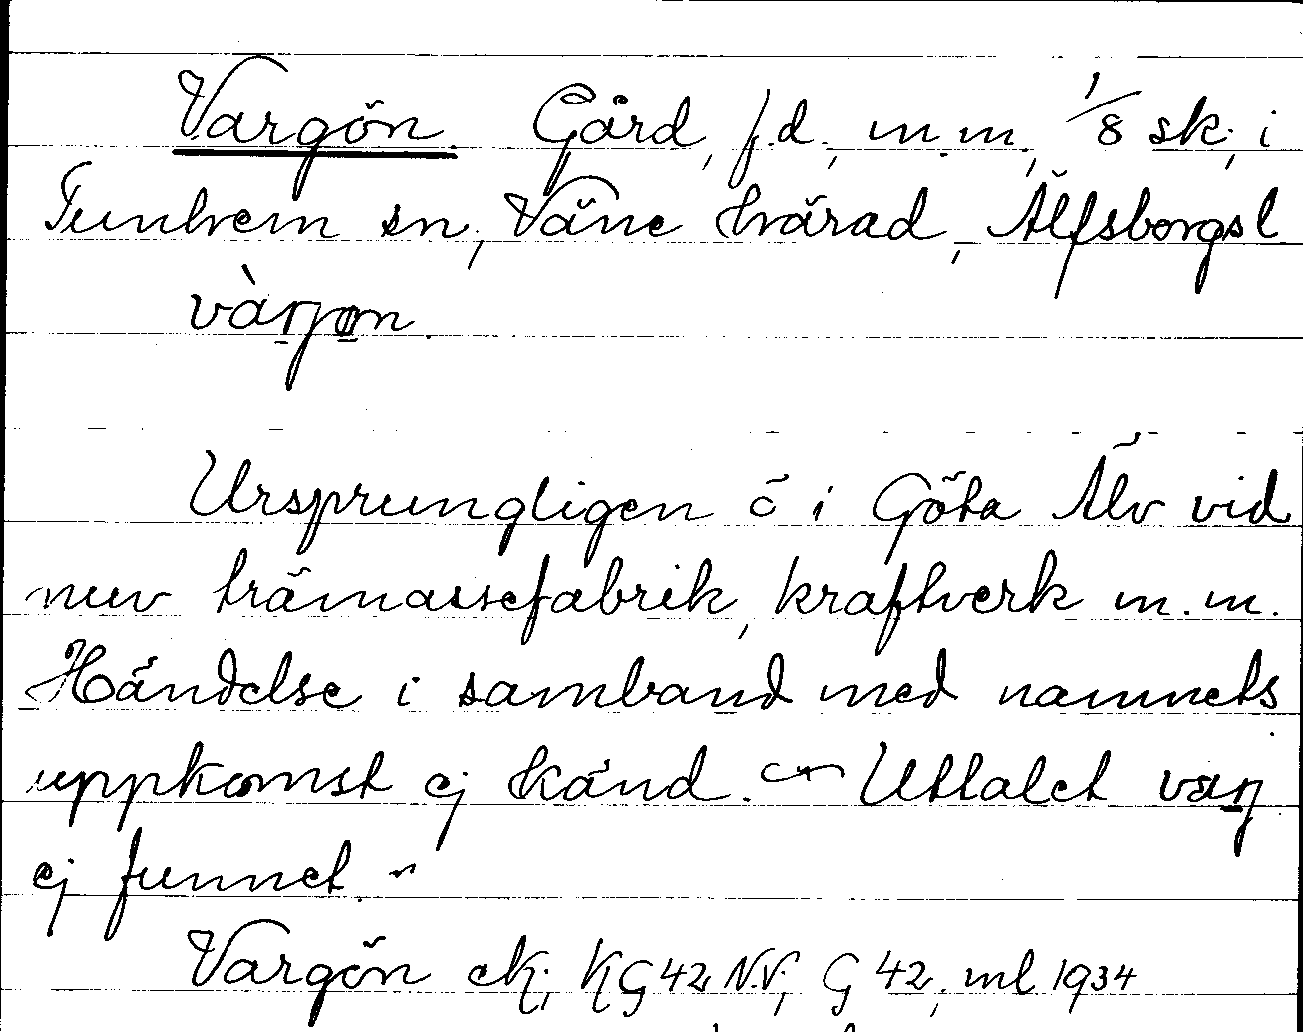 Vargön. Gård, f.d., m.m., 1/8 sk., i
Tunhem sn, Väne härad, Älfsborgs l
vàrjøn.
Ursprungligen ö i Göta Älv vid
nuv trämassefabrik, kraftverk m.m.
Händelse i samband med namnets
uppkomst ej känd. — Uttalet varj
ej funnet. "
Vargön ek., KG 42 N.V., G 42, ml 1934